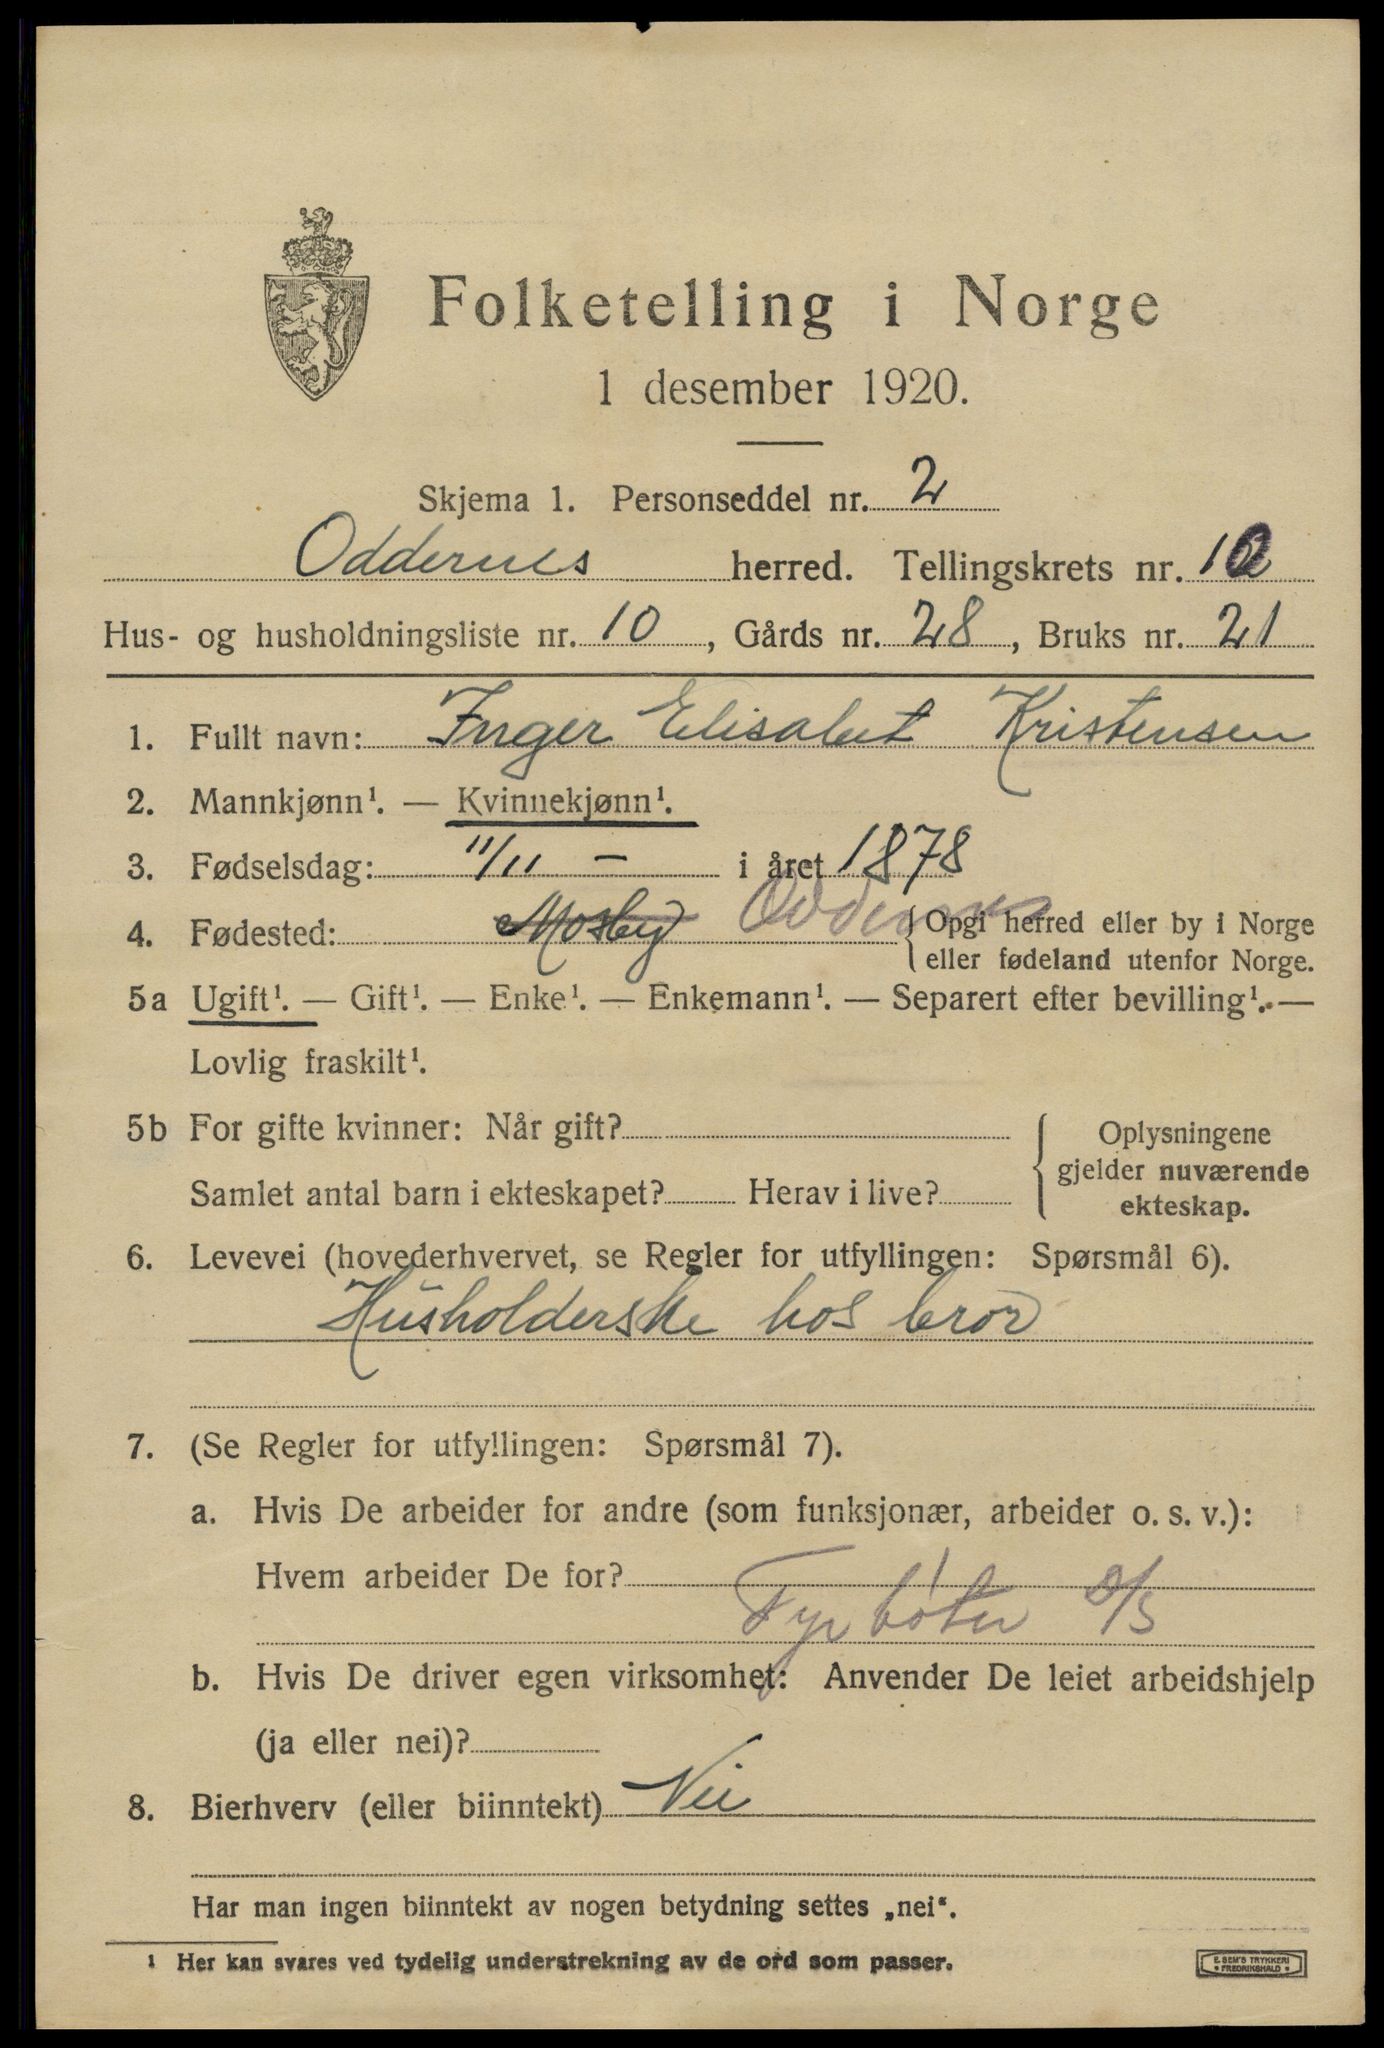 Folketelling i Norge
1 desember 1920.
Skjema 1. Personseddel nr. 2
Oddernes herred. Tellingskrets nr. 10
Hus- og husholdningsliste nr. 10, Gårds nr. 28, Bruks nr. 21
1. Fullt navn: Inger Elisabet Kristensen
2. Mannkjønn¹. — Kvinnekjønn¹.
3. Fødselsdag: 11/11 - i året 1878
4. Fødested: Mosby Oddernes { Opgi herred eller by i Norge
eller fødeland utenfor Norge.
5a Ugift¹. — Gift¹. — Enke¹. — Enkemann¹. — Separert efter bevilling¹. —
Lovlig fraskilt¹.
5b For gifte kvinner: Når gift?
Samlet antal barn i ekteskapet? Herav i live?
{ Oplysningene
gjelder nuværende
ekteskap.
6. Levevei (hovederhvervet, se Regler for utfyllingen: Spørsmål 6).
Husholderske hos bror
7. (Se Regler for utfyllingen: Spørsmål 7).
a. Hvis De arbeider for andre (som funksjonær, arbeider o. s. v.):
Hvem arbeider De for?
Fyrbøter
b. Hvis De driver egen virksomhet: Anvender De leiet arbeidshjelp
(ja eller nei)?
8. Bierhverv (eller biinntekt) Nei
Har man ingen biinntekt av nogen betydning settes „nei“.
¹ Her kan svares ved tydelig understrekning av de ord som passer.
E. SEM'S TRYKKERI
• FREDRIKSHALD •